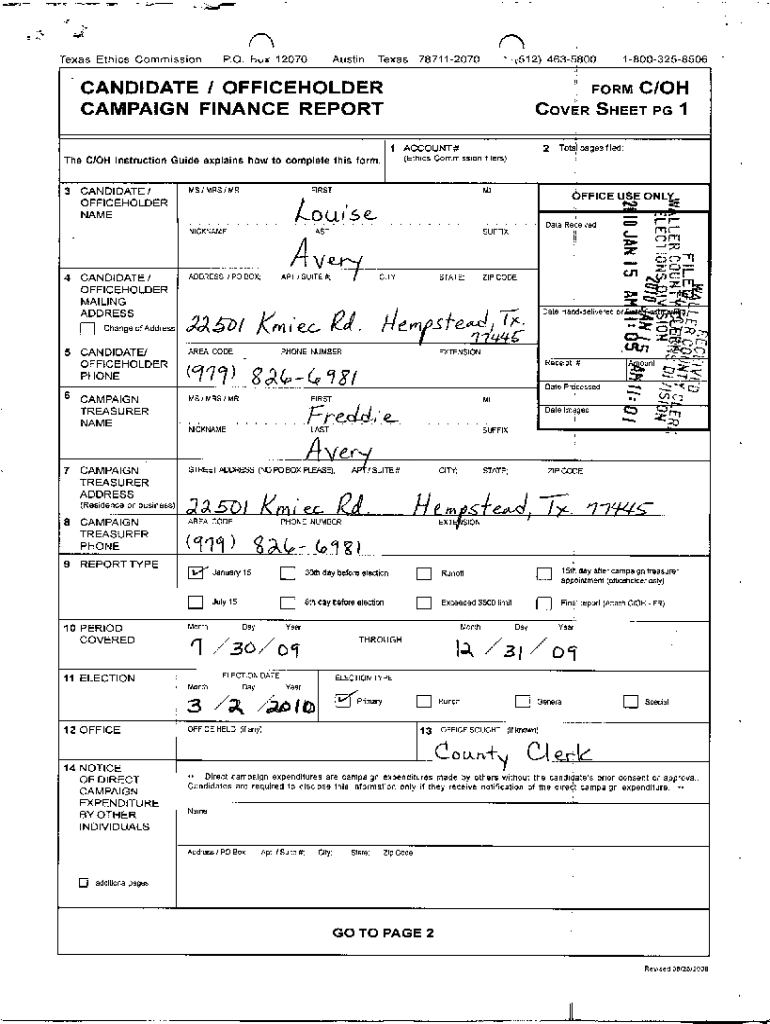 Texas Ethics Commission P.O. Box 12070 Austin Texas 78711-2070 (512) 463-5800 1-800-325-8506
CANDIDATE / OFFICEHOLDER
CAMPAIGN FINANCE REPORT
FORM C/OH
COVER SHEET PG 1
The C/OH Instruction Guide explains how to complete this form.
1 ACCOUNT #
(Ethics Commission filers)
2 Total pages filed:
3 CANDIDATE / OFFICEHOLDER NAME
MS / MRS / MR FIRST MI
Louise
NICKNAME LAST SUFFIX
Avery
OFFICE USE ONLY
Date Received
FILED
WALLER COUNTY CLERK
ELECTIONS DIVISION
2010 JAN 15 AM 11:05
RECEIVED
WALLER COUNTY CLERK
ELECTIONS DIVISION
2010 JAN 15 AM 11:01
4 CANDIDATE / OFFICEHOLDER MAILING ADDRESS
Change of Address
ADDRESS / PO BOX; APT / SUITE #; CITY STATE; ZIP CODE
22501 Kmiec Rd. Hempstead, Tx. 77445
Date Hand-delivered or
5 CANDIDATE/ OFFICEHOLDER PHONE
AREA CODE PHONE NUMBER EXTENSION
(979) 826-6981
Receipt # Amount
Date Processed
Date Images
6 CAMPAIGN TREASURER NAME
MS / MRS / MR FIRST MI
Freddie
NICKNAME LAST SUFFIX
Avery
7 CAMPAIGN TREASURER ADDRESS
(Residence or business)
STREET ADDRESS (NO PO BOX PLEASE); APT / SUITE # CITY; STATE; ZIP CODE
22501 Kmiec Rd. Hempstead, Tx. 77445
8 CAMPAIGN TREASURER PHONE
AREA CODE PHONE NUMBER EXTENSION
(979) 826-6981
9 REPORT TYPE
January 15 30th day before election Runoff 15th day after campaign treasurer appointment (officeholder only)
July 15 8th day before election Exceeded $500 limit Final report (Attach C/OH - FR)
10 PERIOD COVERED
Month Day Year THROUGH Month Day Year
7 / 30 / 09 12 / 31 / 09
11 ELECTION
ELECTION DATE
Month Day Year
3 / 2 / 2010
ELECTION TYPE
Primary Runoff General Special
12 OFFICE
OFFICE HELD (if any)
13 OFFICE SOUGHT (if known)
County Clerk
14 NOTICE OF DIRECT CAMPAIGN EXPENDITURE BY OTHER INDIVIDUALS
** Direct campaign expenditures are campaign expenditures made by others without the candidate's prior consent or approval.
Candidates are required to disclose this information only if they receive notification of the direct campaign expenditure. **
Name
Address / PO Box Apt / Suite #; City; State; Zip Code
additional pages
GO TO PAGE 2